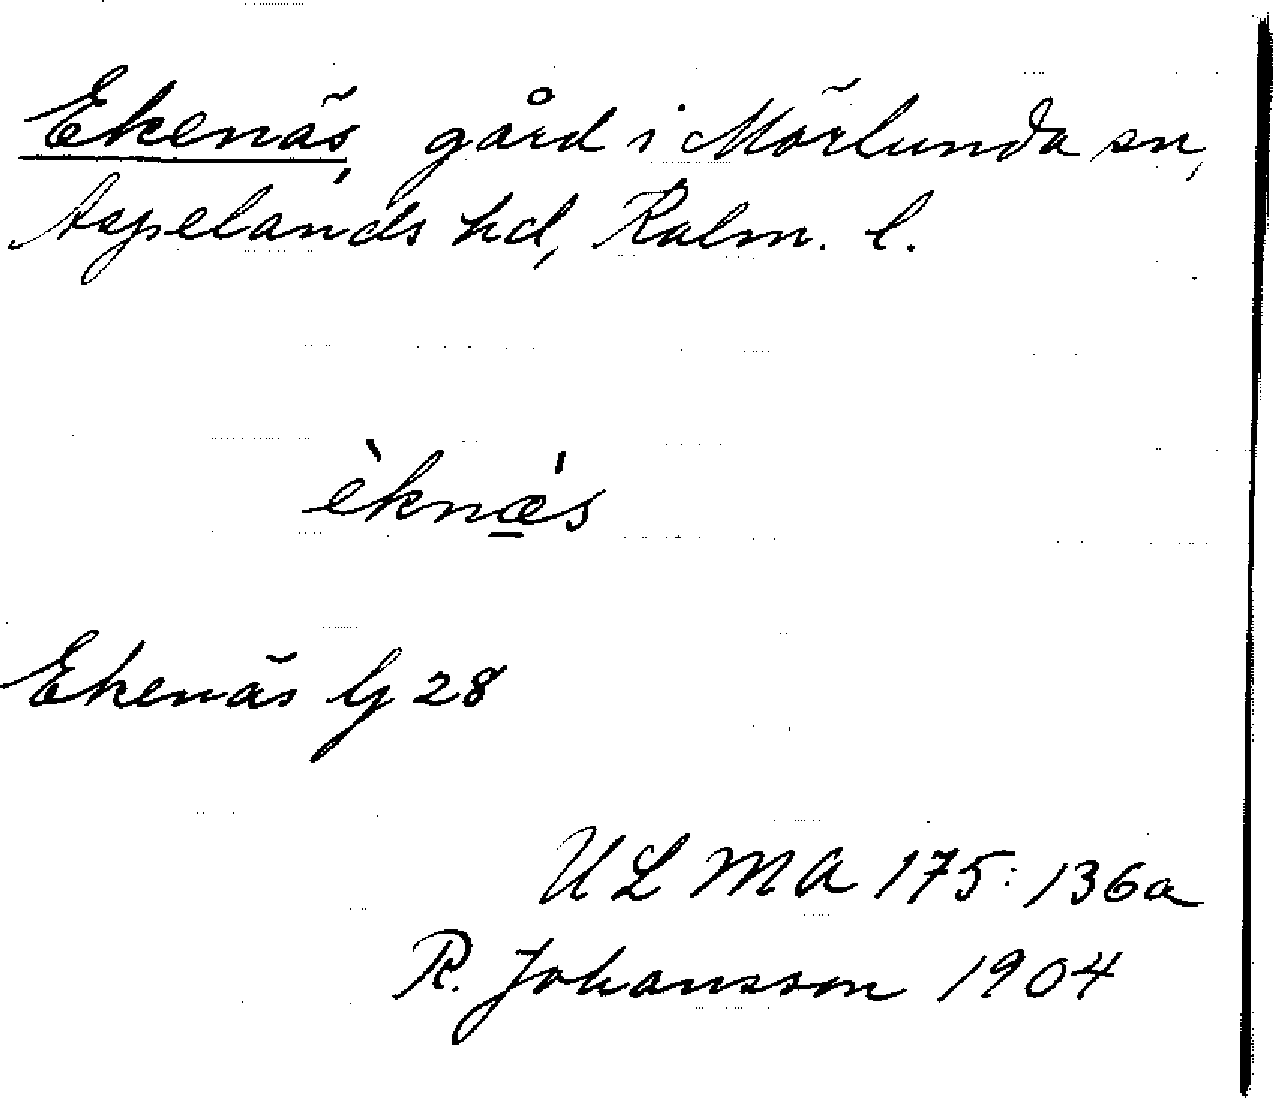 Ekenäs, gård i Mörlunda sn,
Aspelands hd, Kalm. l.
èknæ̲ś
Ekenäs G 28
ULMA 175:136a
R. Johansson 1904